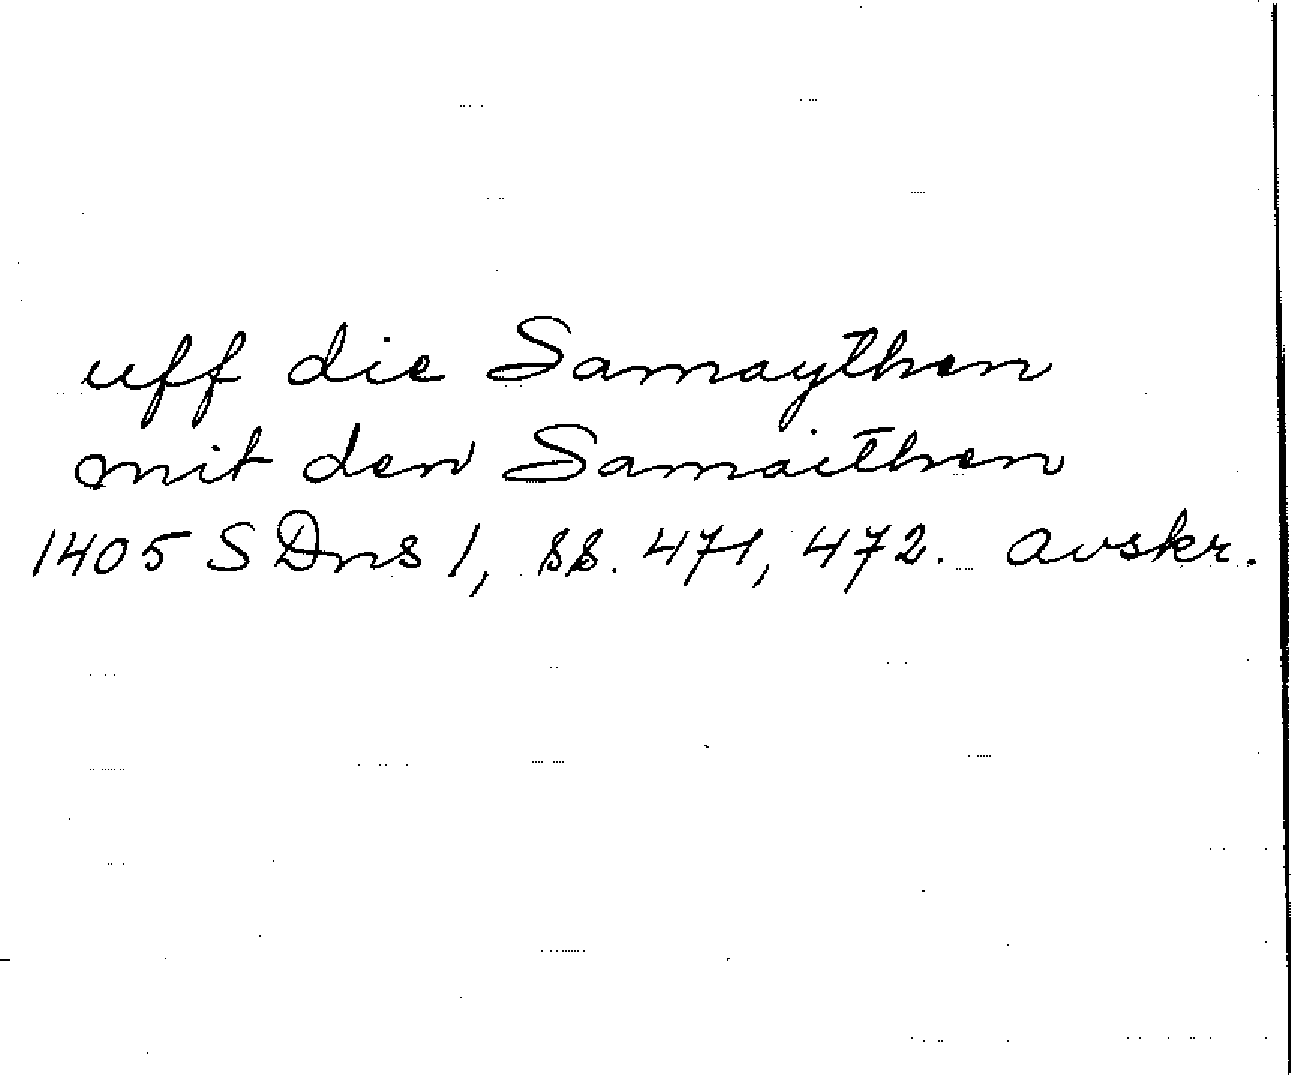 uff die Samaythen
mit den Samaithen
1405 SDns 1, ss. 471, 472. avskr.